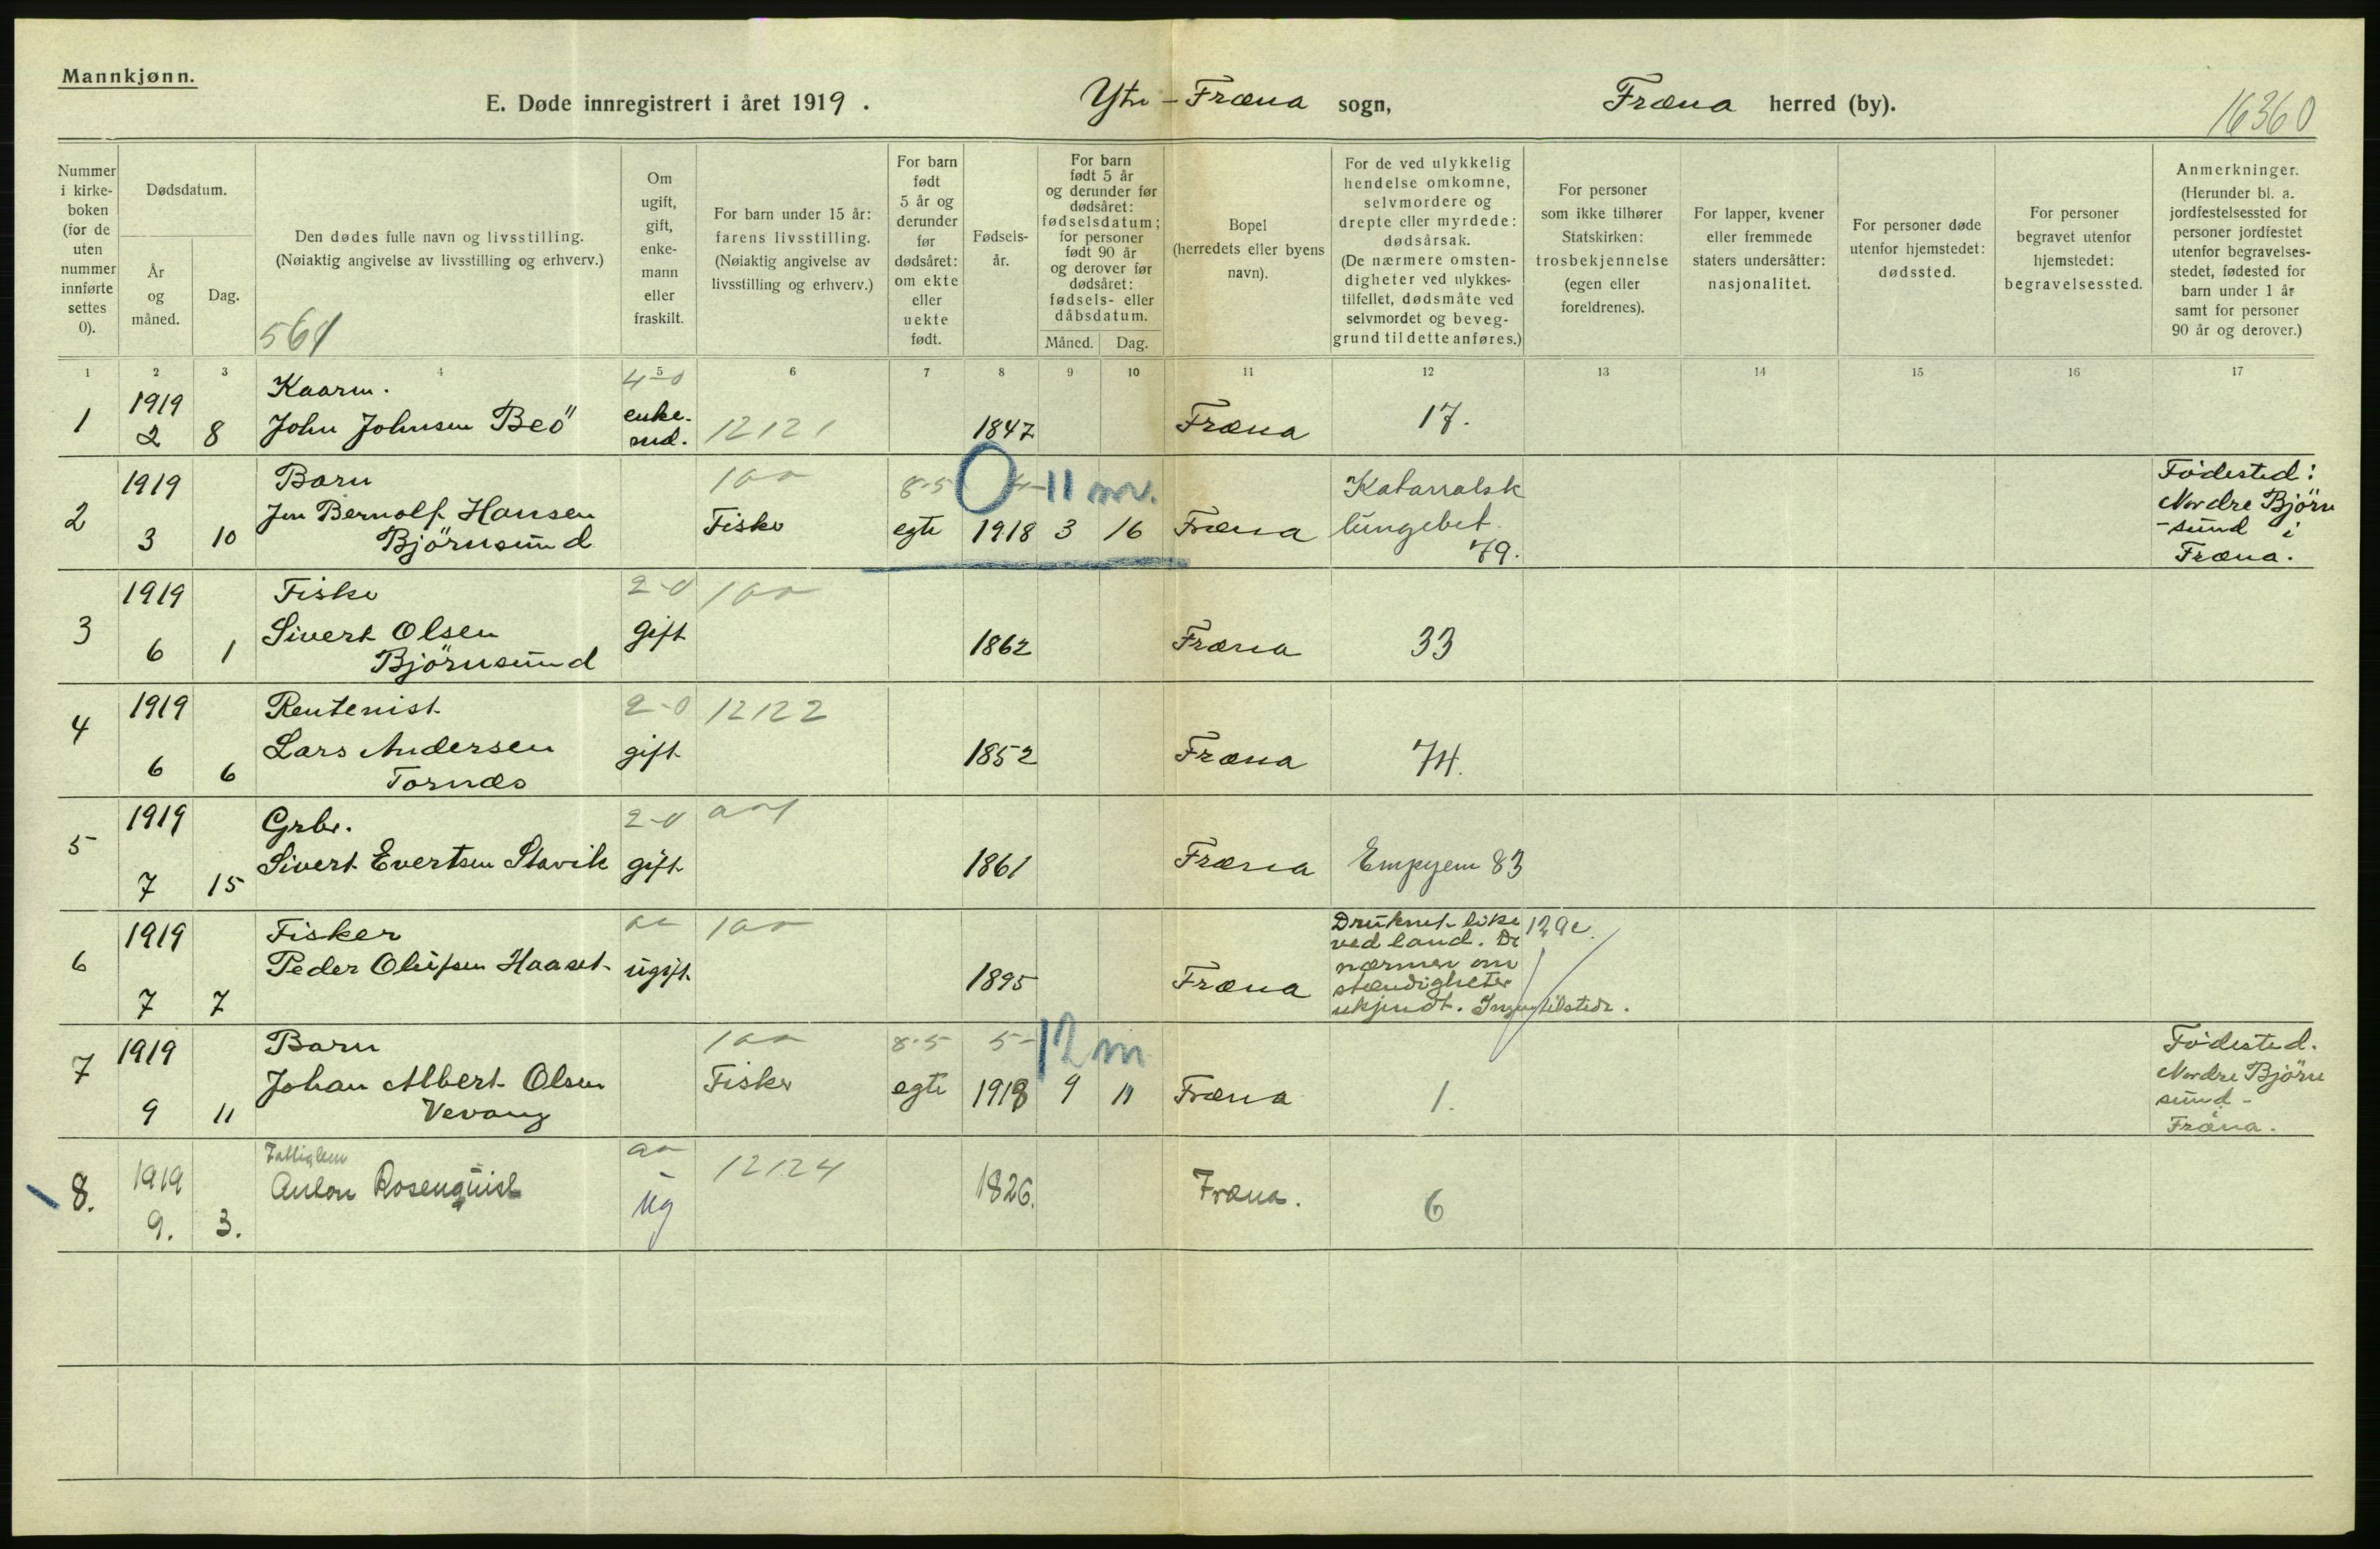 Mannkjønn.
E. Døde innregistrert i året 1919. Ytre-Fræna sogn, Fræna herred (by).
16360
Nummer i kirkeboken (for de uten nummer innførte settes 0).
Dødsdatum.
År og måned.
Dag.
Den dødes fulle navn og livsstilling.
(Nøiaktig angivelse av livsstilling og erhverv.)
561
Om ugift, gift, enkemann eller fraskilt.
For barn under 15 år: farens livsstilling.
(Nøiaktig angivelse av livsstilling og erhverv.)
For barn født 5 år og derunder før dødsåret: om ekte eller uekte født.
Fødselsår.
For barn født 5 år og derunder før dødsåret: fødselsdatum; for personer født 90 år og derover før dødsåret: fødsels- eller dåbsdatum.
Måned. Dag.
Bopel (herredets eller byens navn).
For de ved ulykkelig hendelse omkomne, selvmordere og drepte eller myrdede: dødsårsak.
(De nærmere omstendigheter ved ulykkestilfellet, dødsmåte ved selvmordet og beveggrund til dette anføres.)
For personer som ikke tilhører Statskirken: trosbekjennelse (egen eller foreldrenes).
For lapper, kvener eller fremmede staters undersåtter: nasjonalitet.
For personer døde utenfor hjemstedet: dødssted.
For personer begravet utenfor hjemstedet: begravelsessted.
Anmerkninger.
(Herunder bl. a. jordfestelsessted for personer jordfestet utenfor begravelsesstedet, fødested for barn under 1 år samt for personer 90 år og derover.)
1 2 3 4 5 6 7 8 9 10 11 12 13 14 15 16 17
Kaarm. 4-0
1 1919 2 8 John Johnsen Beö enkemd. 12121 1847 Fræna 17.
1919 Barn 100 8-5 0 4-11 mv. Katarralsk Födested:
2 3 10 Jen Bernolf Hansen Fisker egte 1918 3 16 Fræna lungebet. Nordre Björn
Björnsund 79. -sund i
Fræna.
1919 Fisker 2-0 100
3 6 1 Sivert Olsen gift 1862 Fræna 33
Björnsund
1919 Rentenist 2-0 12122
4 6 6 Lars Andersen gift 1852 Fræna 74.
Tornæs
1919 Grbr. 2-0
5 7 15 Sivert Evertsen Stavik gift 1861 Fræna Empyem 83
1919 Fisker 100 Druknet like 129c.
6 7 7 Peder Olufsen Haaset ugift 1895 Fræna ved land. De
nærmere om
stændigheter
ukjendt. Ingen tilstede.
1919 Barn 100 8-5 5- 12 m Födested.
7 9 11 Johan Albert Olsen Fisker egte 1918 9 11 Fræna 1. Nordre Björn
Vevang sund - i
Fræna.
Fattiglem
8. 1919 9. 3. Anton Rosenquist ug 12124 1826. Fræna. 6